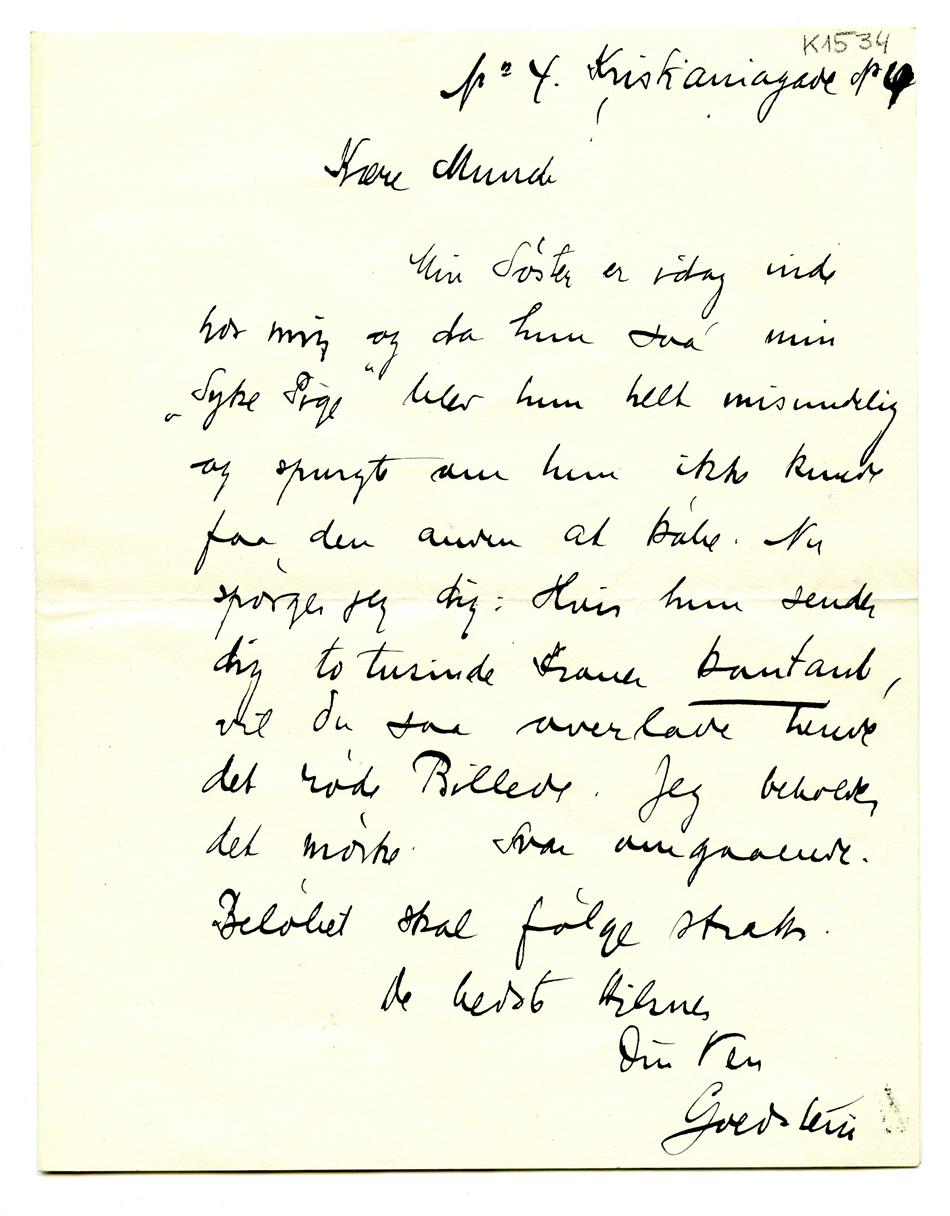 K1534
No 4. Kristianiagade No 4
Kære Munch
Min Söster er idag inde
hos mig og da hun saa min
„Syke Pige" blev hun helt misundelig
og spurgte om hun ikke kunde
faa den anden at köbe. Nu
spörger jeg dig: Hvis hun sender
dig to tusinde Kroner kontant,
vil du saa overlade hende
det röde Billede. Jeg beholder
det mörke. Svar omgaaende.
Belöbet skal fölge straks.
De bedste Hilsner
Din Ven
Goldstein